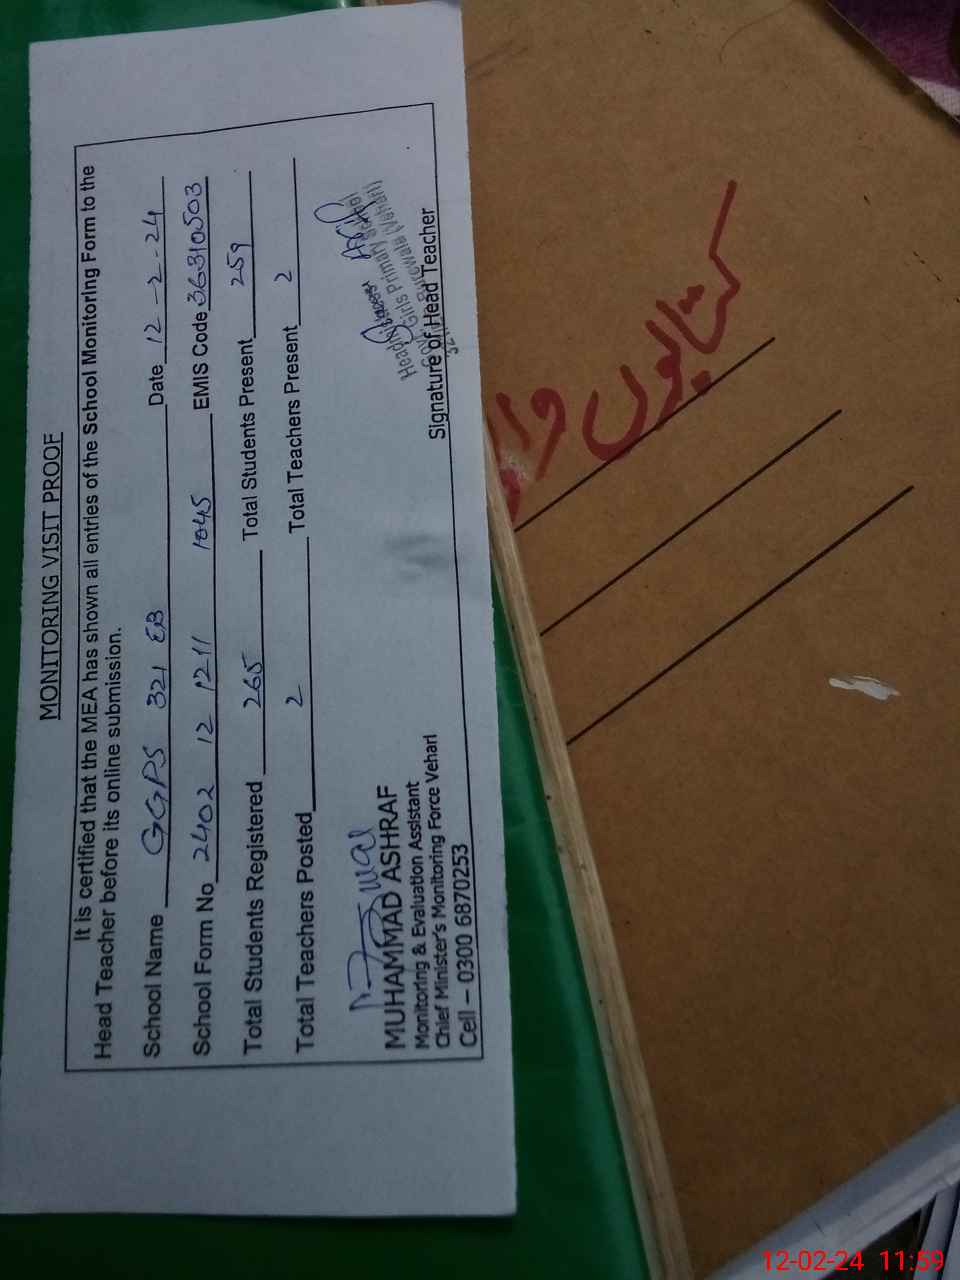 MONITORING VISIT PROOF
It is certified that the MEA has shown all entries of the School Monitoring Form to the
Head Teacher before its online submission.
School Name GGPS 321 EB Date 12-2-24
School Form No 2402 12 1211 1045 EMIS Code 36310503
Total Students Registered 265 Total Students Present 259
Total Teachers Posted 2 Total Teachers Present 2
MUHAMMAD ASHRAF
Monitoring & Evaluation Assistant
Chief Minister's Monitoring Force Vehari
Cell – 0300 6870253
Girls Primary School
Burewala (Vehari)
Signature of Head Teacher
کتابوں
12-02-24 11:59